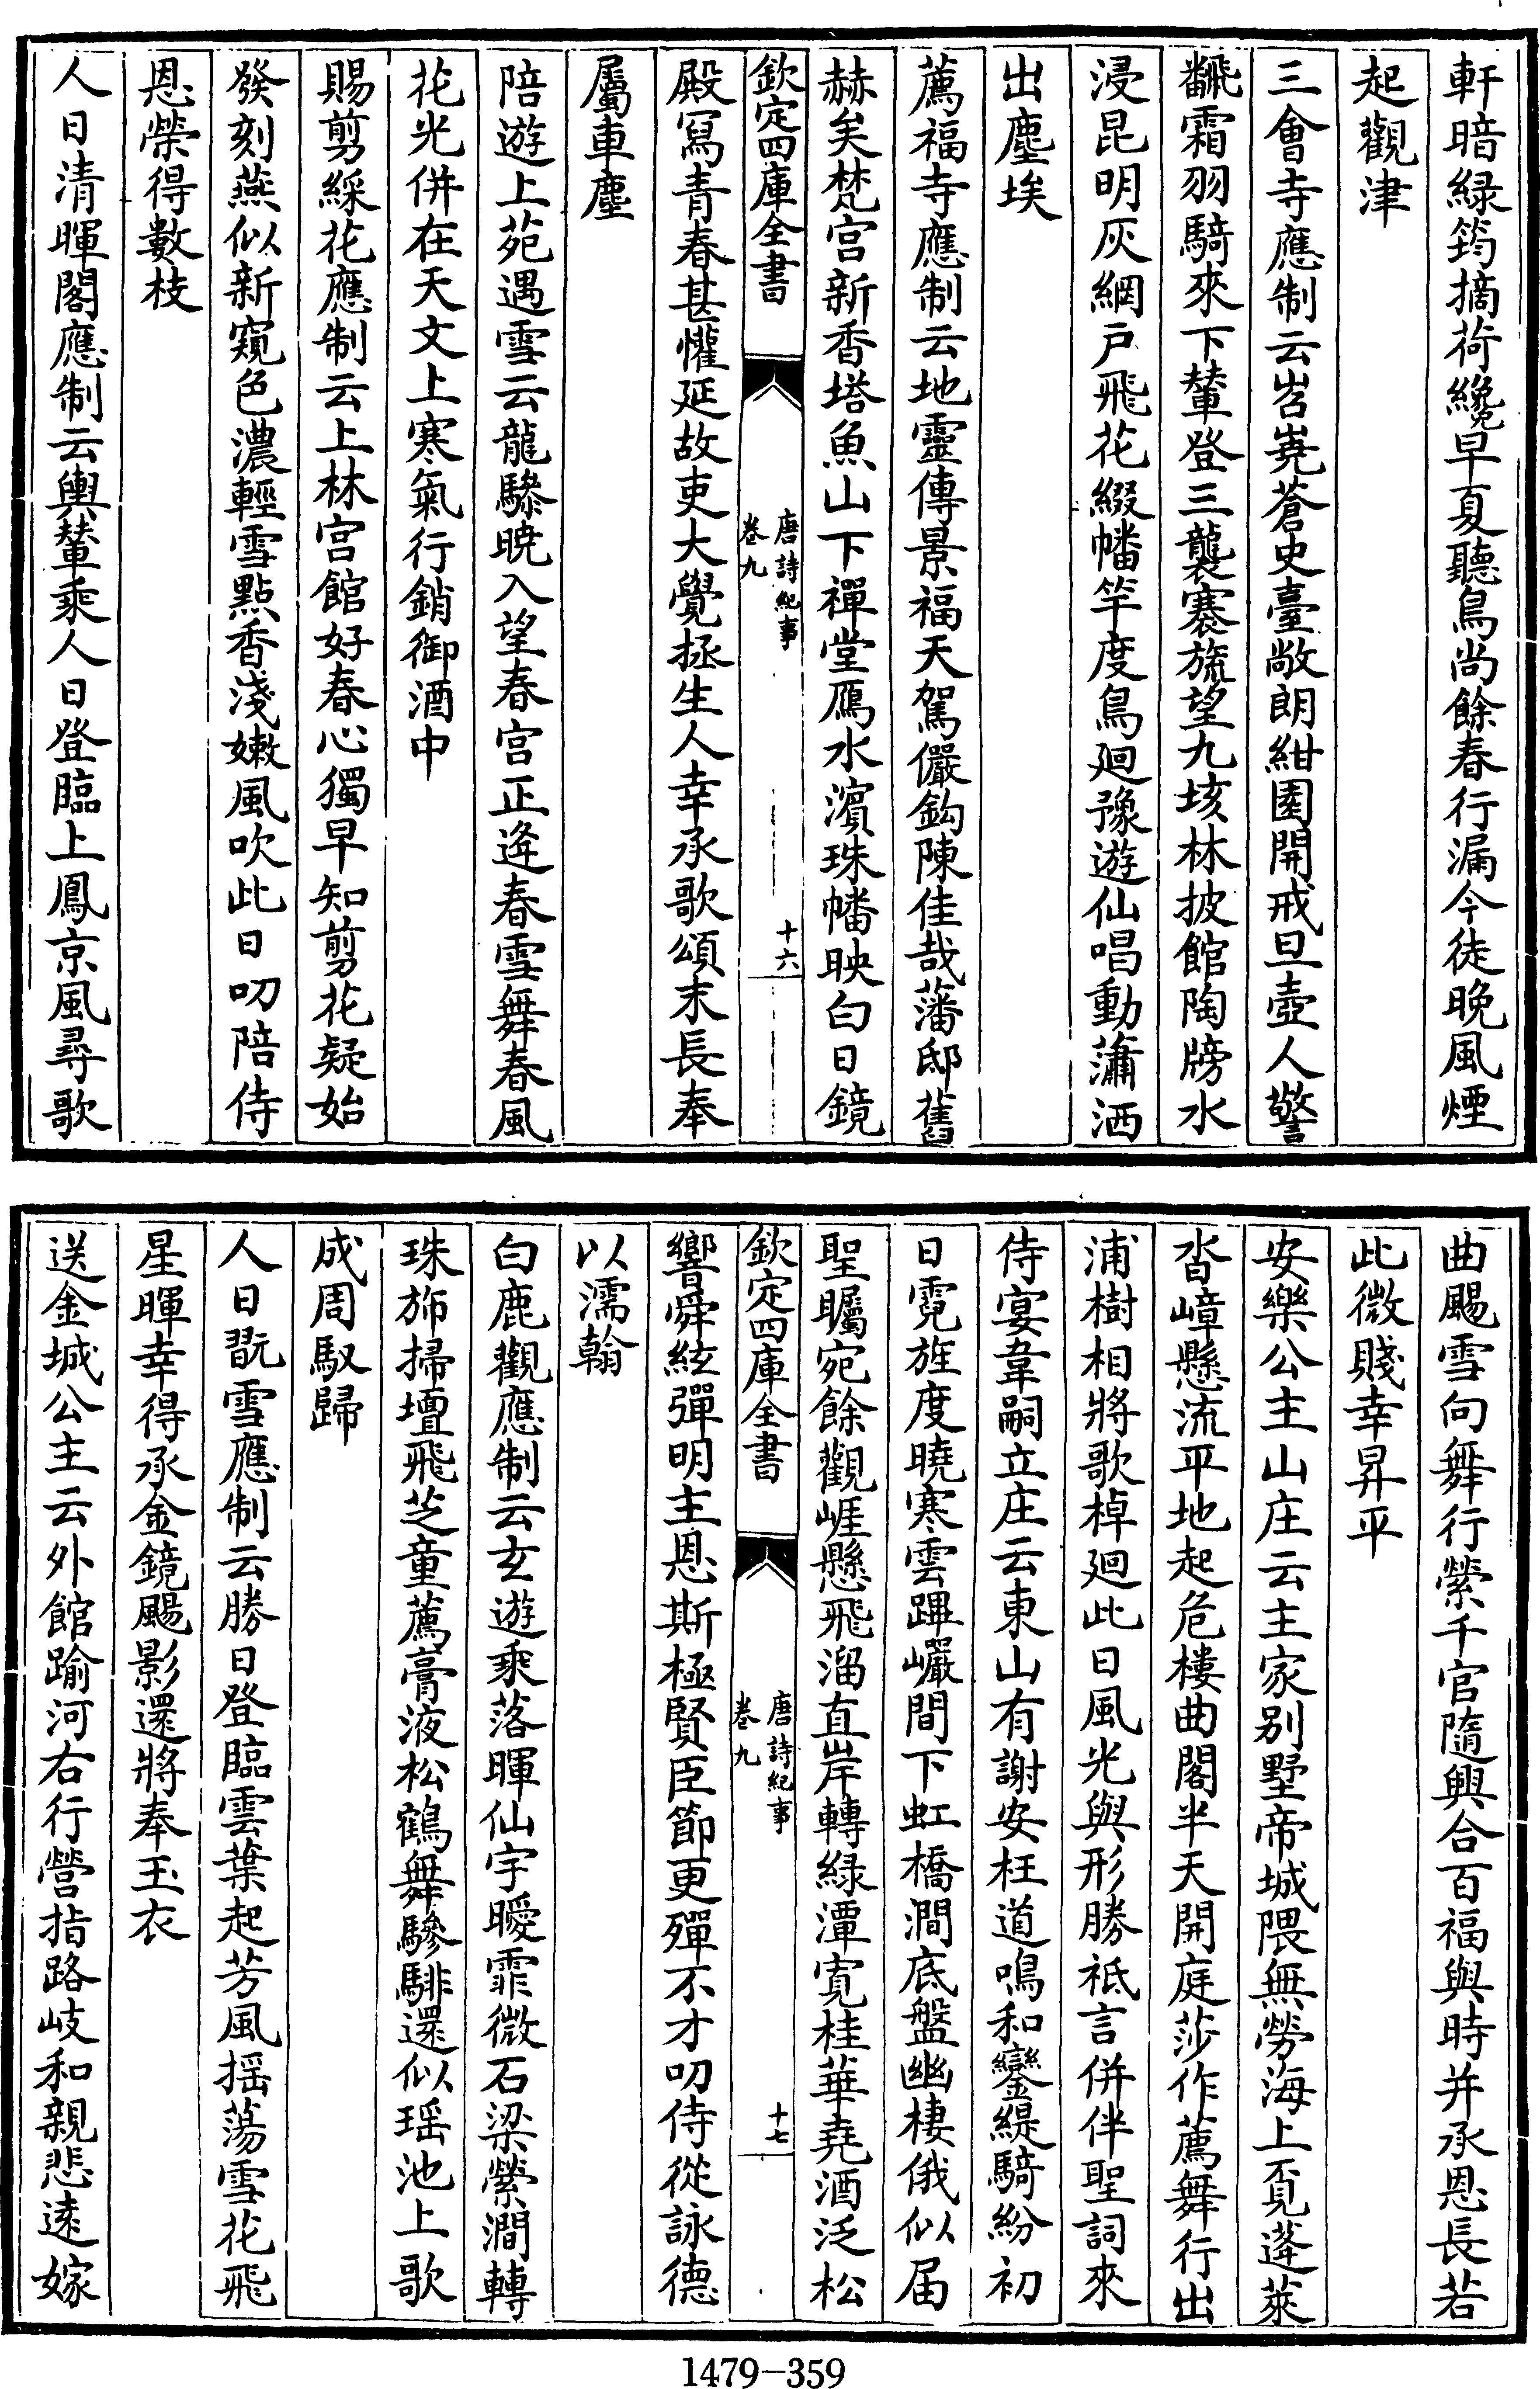 軒暗緑筠摘荷纔早夏聽鳥尚餘春行漏今徒晚風煙
起觀津
三會寺應制云岧嶤蒼史臺敞朗紺園開戒旦壺人警
飜霜羽騎來下輦登三襲褰旒望九垓林披館陶牓水
浸昆明灰網戶飛花綴幡竿度鳥廻豫遊仙唱動蕭洒
出塵埃
薦福寺應制云地靈傳景福天駕儼鈎陳佳哉藩邸舊
赫矣梵宫新香塔魚山下禪堂鴈水濱珠幡映白日鏡
欽定四庫全書
唐詩紀事
卷九
十六
殿冩青春甚懽延故吏大覺拯生人幸承歌頌末長奉
屬車塵
陪遊上苑遇雪云龍驂曉入望春宫正逄春雪舞春風
花光併在天文上寒氣行銷御酒中
賜剪綵花應制云上林宫館好春心獨早知剪花疑始
發刻燕似新窺色濃輕雪點香淺嫩風吹此日叨陪侍
恩榮得數枝
人日清暉閣應制云輿輦乘人日登臨上鳳京風尋歌
曲颺雪向舞行縈千官隨興合百福與時并承恩長若
此微賤幸昇平
安樂公主山庄云主家别墅帝城隈無勞海上覓蓬萊
沓嶂懸流平地起危樓曲閣半天開庭莎作薦舞行出
浦樹相將歌棹廻此日風光與形勝祗言併伴聖詞來
侍宴韋嗣立庄云東山有謝安枉道鳴和鑾緹騎紛初
日霓旌度曉寒雲蹕巗間下虹橋澗底盤幽棲俄似届
聖矚宛餘觀崕懸飛溜直岸轉緑潭寛桂華堯酒泛松
欽定四庫全書
唐詩紀事
卷九
十七
響舜絃彈明主恩斯極賢臣節更殫不才叨侍從詠德
以濡翰
白鹿觀應制云玄遊乘落暉仙宇曖霏微石梁縈澗轉
珠斾掃壇飛芝童薦膏液松鶴舞驂騑還似瑶池上歌
成周馭歸
人日翫雪應制云勝日登臨雲葉起芳風揺蕩雪花飛
星暉幸得承金鏡颺影還將奉玉衣
送金城公主云外館踰河右行營指路岐和親悲逺嫁
1479-359